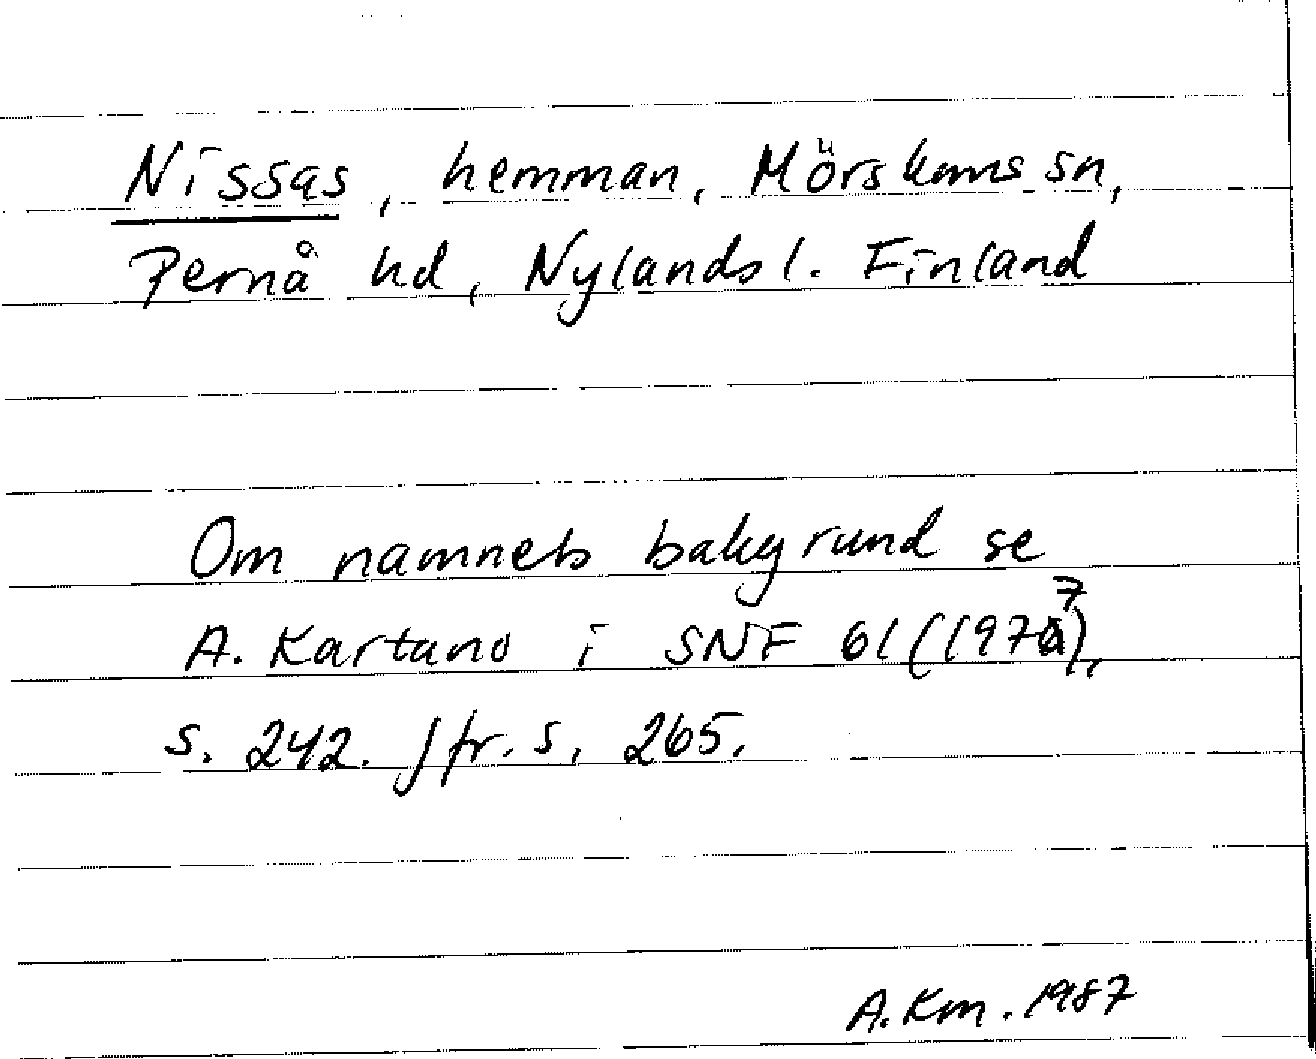 Nissas, hemman, Mörskoms sn,
Pernå hd, Nylands l. Finland
Om namnets bakgrund se
A. Kartano i SNF 61 (1977),
s. 242. Jfr. s. 265.
A. Km. 1987